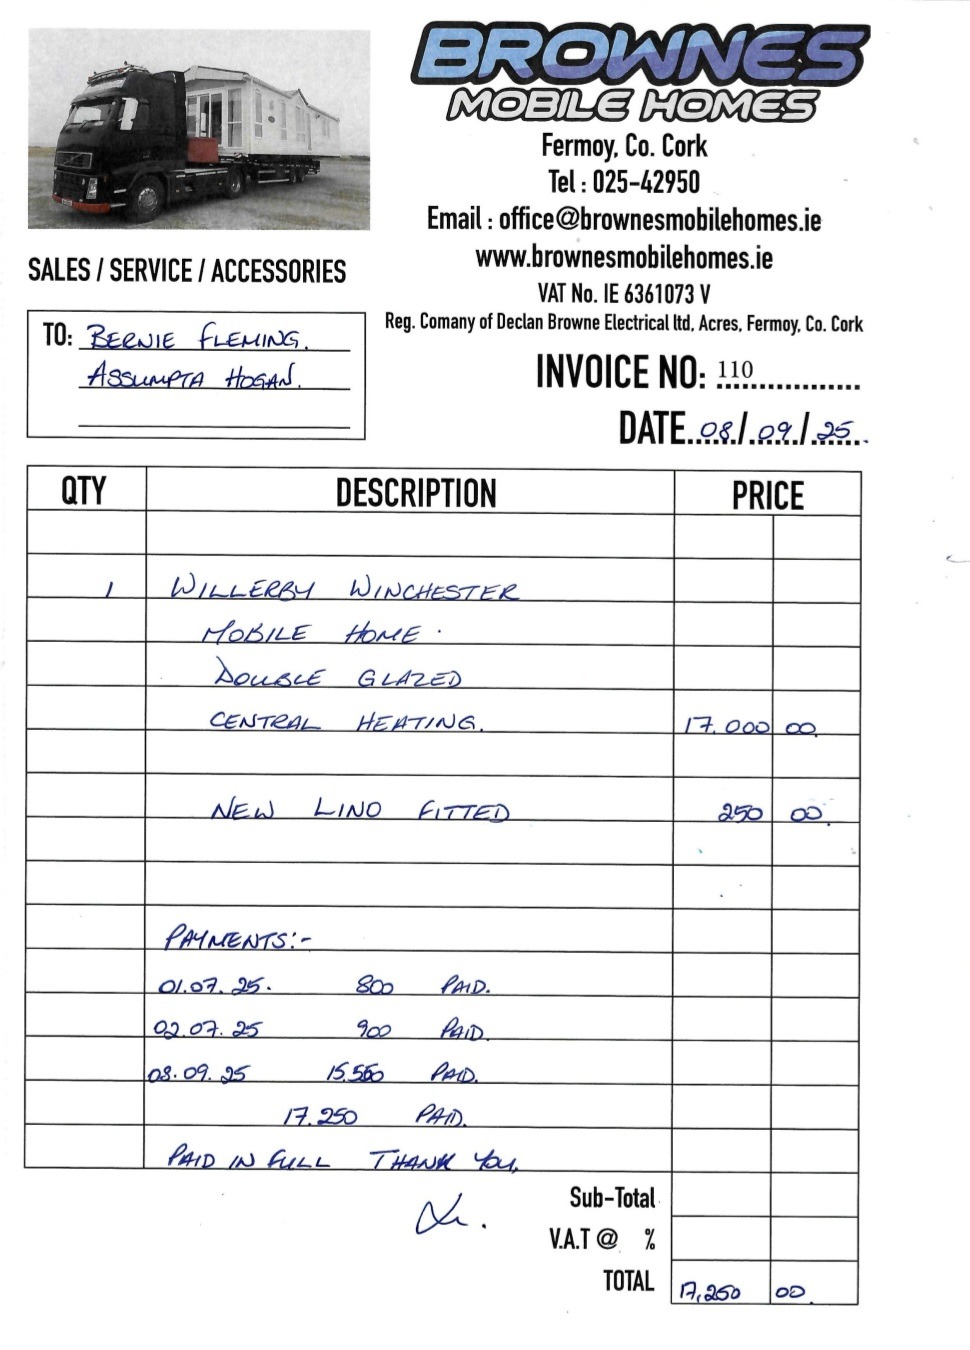 BROWNES
MOBILE HOMES
Fermoy, Co. Cork
Tel : 025-42950
Email : office@brownesmobilehomes.ie
www.brownesmobilehomes.ie
VAT No. IE 6361073 V
Reg. Comany of Declan Browne Electrical ltd, Acres, Fermoy, Co. Cork
SALES / SERVICE / ACCESSORIES
TO: BERNIE FLEMING.
ASSUMPTA HOGAN.
INVOICE NO: 110
DATE 08/09/25
QTY DESCRIPTION PRICE
1 WILLERBY WINCHESTER
MOBILE HOME.
DOUBLE GLAZED
CENTRAL HEATING. 17.000 00.
NEW LINO FITTED 250 00.
PAYMENTS:-
01.07.25. 800 PAID.
02.07.25 900 PAID.
08.09.25 15.550 PAID.
17.250 PAID.
PAID IN FULL THANK YOU.
Sub-Total
V.A.T @ %
TOTAL 17,250 00.